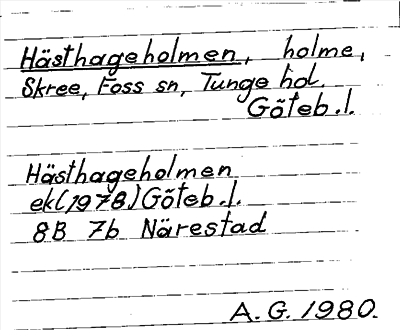 Hästhageholmen, holme,
Skree, Foss sn, Tunge hd.
Göteb.l.
Hästhageholmen
ek(1978)Göteb.l.
8B 7b Närestad
A.G.1980.